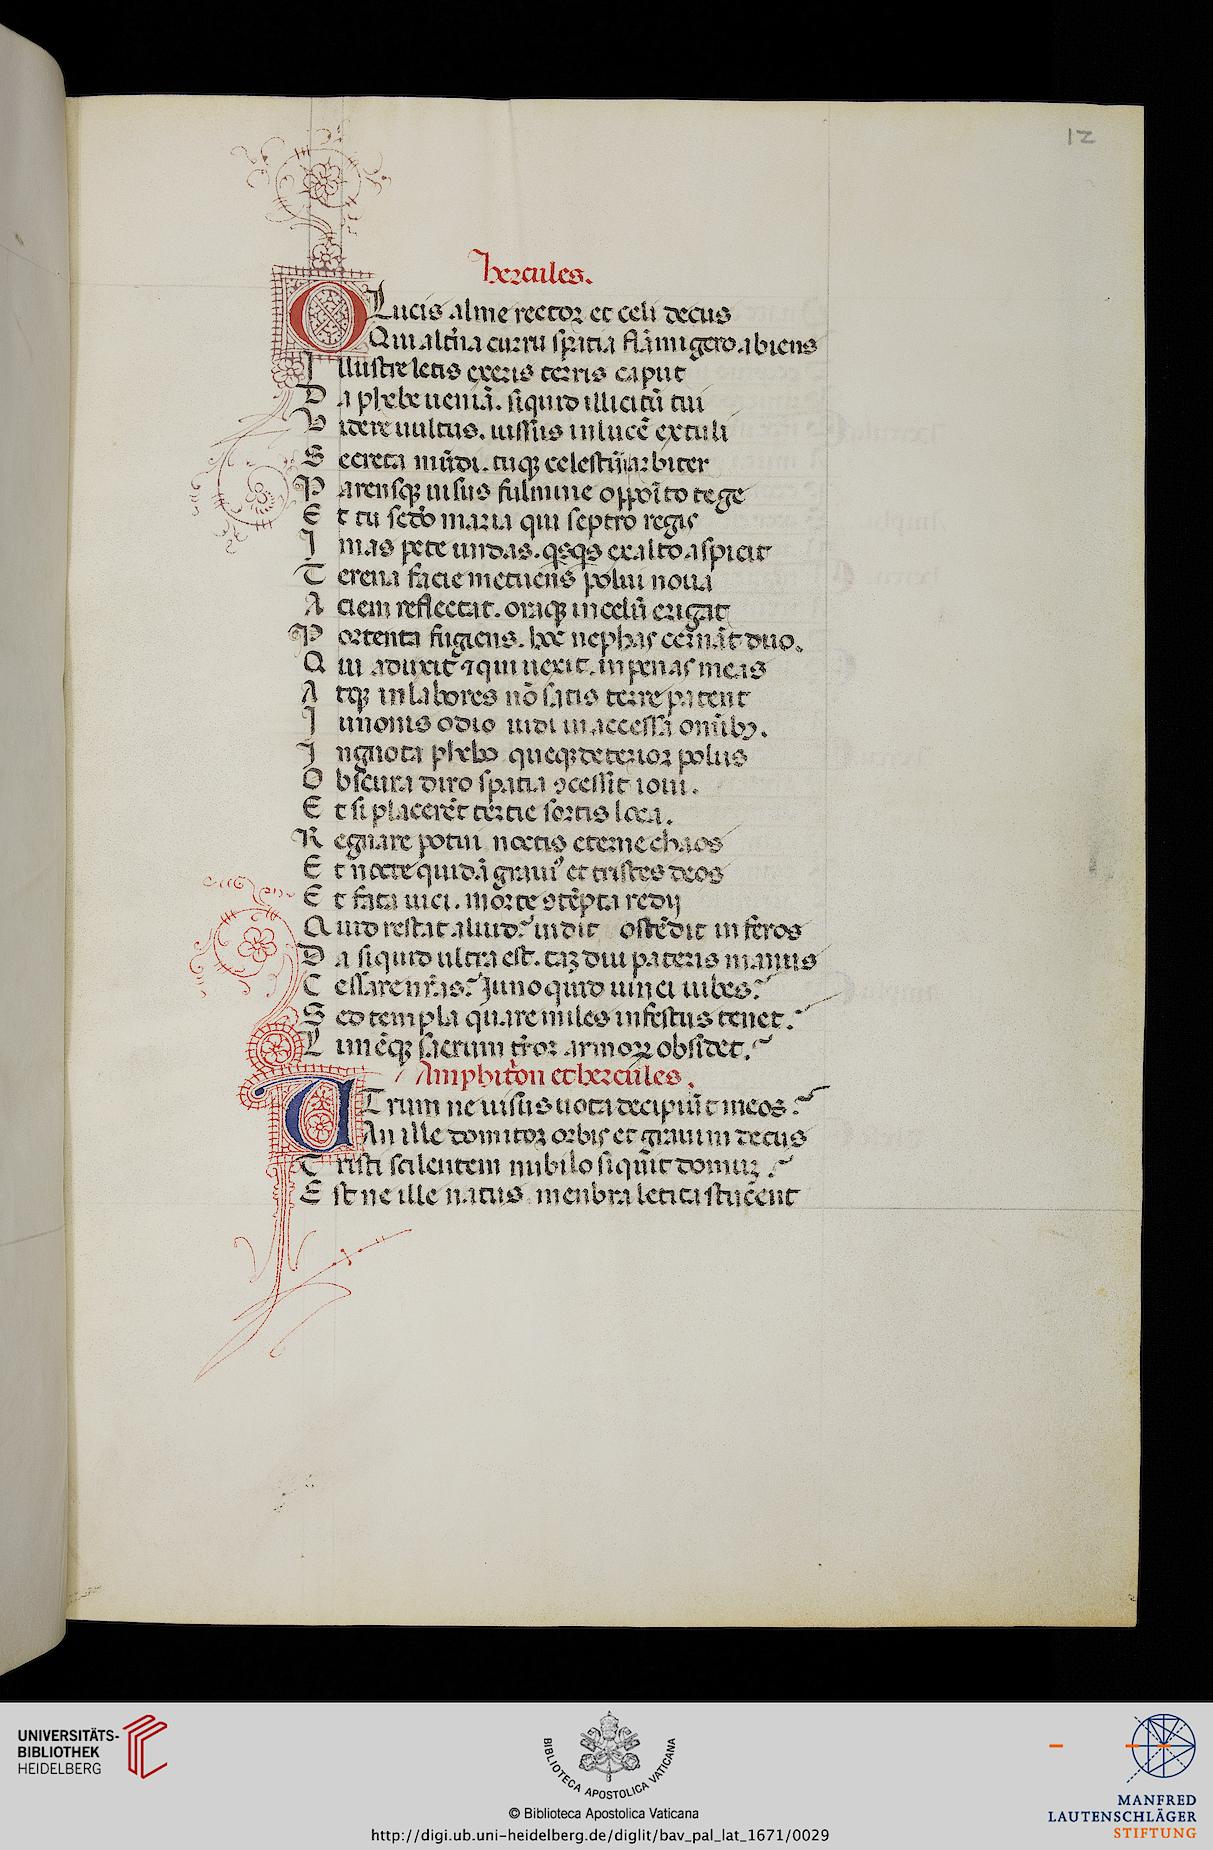 12
hercules.
O Lucis alme rector et celi decus
Qui alt̃na curru spatia flãmigero abiens
Illustre letis exeris terris caput
Da phebe ueniã. siquid illicitũ tui
Videre uultus. iussus in lucẽ extuli
Secreta mũdi. tuqȝ celestũ arbiter
Parensqȝ uisus fulmine oppoĩto tege
Et tu sc̃do maria qui septro regis
Imas pete undas. qsqs ex alto aspicit
Terena facie metuens polui noua
Aciem reflectat. oraqȝ in celũ erigat
Portenta fugiens. hoc nephas cernãt duo.
Qui aduxit ⁊ qui uexit. in penas meas
Atqȝ in labores nõ satis terre patent
Iunonis odio uidi inaccessa omĩbȝ.
Ingnota phebo queqȝ deterior polus
Obscura diro spatia ꝯcessit ioui.
Et si placerẽt tertie sortis loca.
Regnare potui noctis eterne chaos
Et nocte quidã grauiꝰ et tristes deos
Et fata uici. morte ꝯtẽpta redij
Quid restat aliud? uidit ostẽdit inferos
Da siquid ultra est. taȝ diu pateris manus
Cessare nr̃as? Iuno quid uinci iubes?
Sed templa quare miles infestus tenet?
Limẽqȝ sacrum tr̃or armoꝝ obsidet?
Amphit̃on et hercules.
UTrum ne uisus uota decipiũt meos?
An ille domitor orbis et grauium decus
Tristi scilentem nubilo siquit domuȝ?
Est ne ille natus menbra letitia stupẽent
UNIVERSITÄTS-
BIBLIOTHEK
HEIDELBERG
BIBLIOTECA APOSTOLICA VATICANA
© Biblioteca Apostolica Vaticana
http://digi.ub.uni-heidelberg.de/diglit/bav_pal_lat_1671/0029
MANFRED
LAUTENSCHLÄGER
STIFTUNG